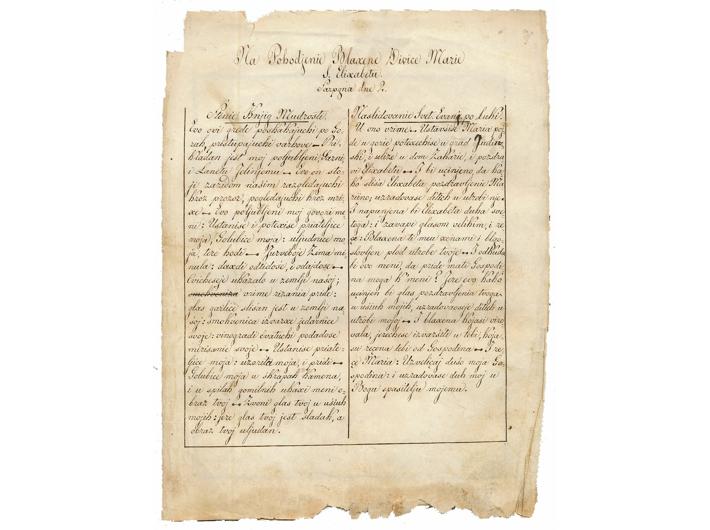 Na Pohodjenie Blaxene Divice Marie
S. Elixabetu
Sarpgna dne 2.
Sctenie Knjig Mudrosti.
Evo ovi grede poskakajuchi po Go-
rah, pristupajuchi varhove — Pri-
kladan jest moj poljubljeni Garni,
i Lanetu Jelinjemu — Evo on sto-
ji zazidom nashim razgledajuchi
kroz prozor, pogledajuchi kroz mri-
xe — Evo poljubljeni moj govori me-
ni: Ustanise i potexise priateljice
moja, Golubice moja: uljudnice mo-
ja, tere hodi — Jurveboje Zima mi-
nula: daxdi odtidose, i odajdose —
Cvichesceje ukazalo u zemlji nashoj;
vrime rizania pride:
glas garlice slisan jest u zemlji na-
soj: smokvenica izvarxe jedavnice
svoje: vinogradi cvatuchi podadose
mirisanie svoje — Ustanise priate-
ljice moja: uzoritu moja, i pridi —
Golubice moja u shrapah kamena,
i u spilah gomilnih ukaxi meni o-
braz tvoj — Zvoni glas tvoj u usiuh
mojih: jere glas tvoj jest sladak, a
obraz tvoj uljudan.
Naslidovanie Svet. Evang. po Luki.
U ono vrime — Ustavsise Maria poj-
de u gorie potexechise u grad Judin-
ski, i ulize u dom Zakarie, i pozdra-
vi Elixabetu — I bi ucinjeno, da ka-
ko slisa Elixabeta pozdravljenie Ma-
riino, uzradovase ditich u utrobi nje-
I napunjena bi Elixabeta duha sve-
toga: i zavapi glasom velikim, i re-
ce: Blaxena ti meu xenami, i blago-
slovljen plod utrobe tvoje — I odkuda
bi ovo meni, da pride mati Gospodi-
na moga k'meni? Jere evo kako
ucinjen bi glas pozdravljenia tvoga
u usiuh mojih, uzradovaseje ditich u
utrobi mojoj — I blaxena kojasi viro-
vala, jerechese izvarsiti u tebi, koja
su recena tebi od Gospodina — I re-
ce Maria: Uzvelicaj dusa moja Go-
spodina: i uzradovase duh moj u
Bogu spasitelju mojemu.